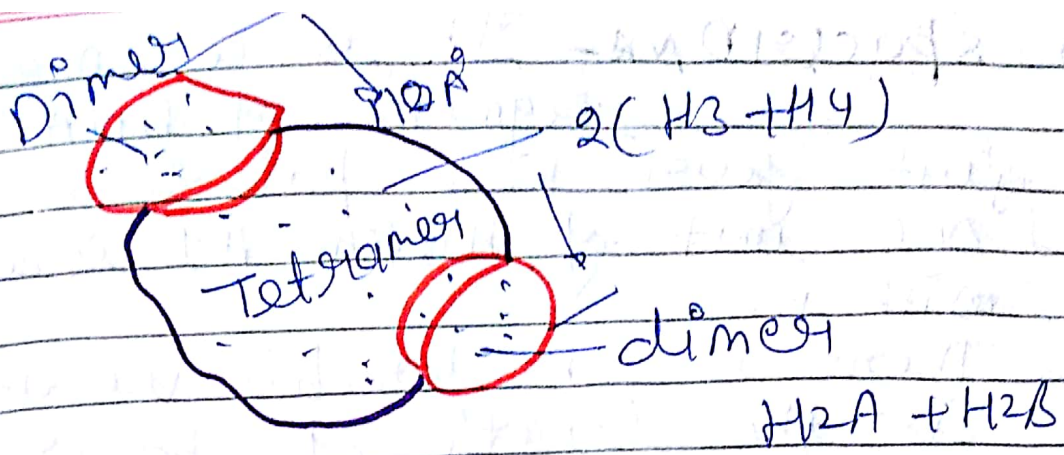 Dimer
110Å
2(H3+H4)
Tetramer
dimer
H2A + H2B